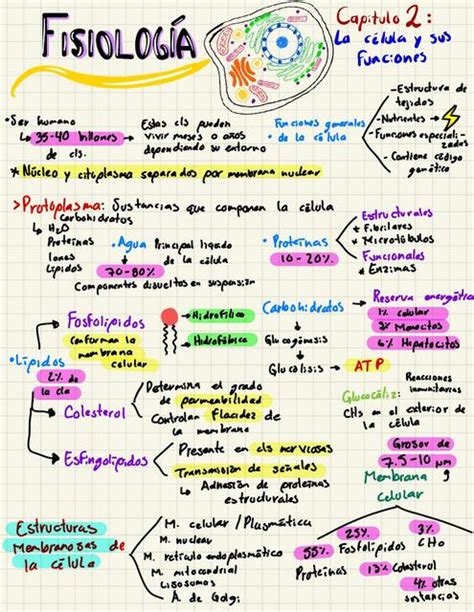 FISIOLOGÍA
Capitulo 2:
La célula y sus
Funciones
• Ser humano
↳ 35-40 billones
de cls.
Estas cls pueden
vivir meses o años
dependiendo su entorno
Funciones generales
de la célula
- Estructura de
tejidos
- Nutrientes →
- Funciones especiali-
zadas
- Contiene código
genético
* Núcleo y citoplasma separados por membrana nuclear
> Protoplasma: Sustancias que componen la célula
Carbohidratos
↳ H2O
Proteínas
Iones
Lípidos
• Agua Principal liquido
de la célula
70-80%
Componentes disueltos en suspensión
• Proteínas
10-20%
Estructurales
* Fibrilares
* Microtúbulos
Funcionales
* Enzimas
• Lípidos
2% de
la cls
Fosfolípidos
conforman la
membrana
celular
Hidrofílica
Hidrofóbica
Carbohidratos
↳ Glucogénosis
↓
Glucolisis → ATP
Reserva energética
1% celular
3% Miocitos
6% Hepatocitos
Colesterol
Determina el grado
de permeabilidad
Controlan Flacidez de
la membrana
Glucocáliz:
Reacciones
inmunitarias
CHs en el exterior de
la célula
Esfingolípidos
Presente en cls nerviosas
Transmisión de señales
↳ Adhesión de proteínas
estructurales
Grosor de
7.5-10 µm
Membrana
celular
Estructuras
Membranosas de
la célula
M. celular / Plasmática
M. nuclear
M. retículo endoplasmático
M. mitocondrial
Lisosomas
A. de Golgi
55%
Proteínas
25%
Fosfolípidos
13% Colesterol
3%
CHO
4%
otras
sustancias